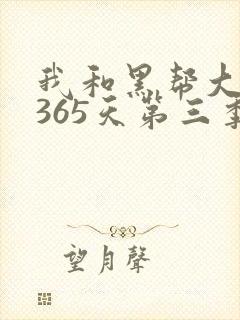 我和黑帮大
365天第三季
望月聲